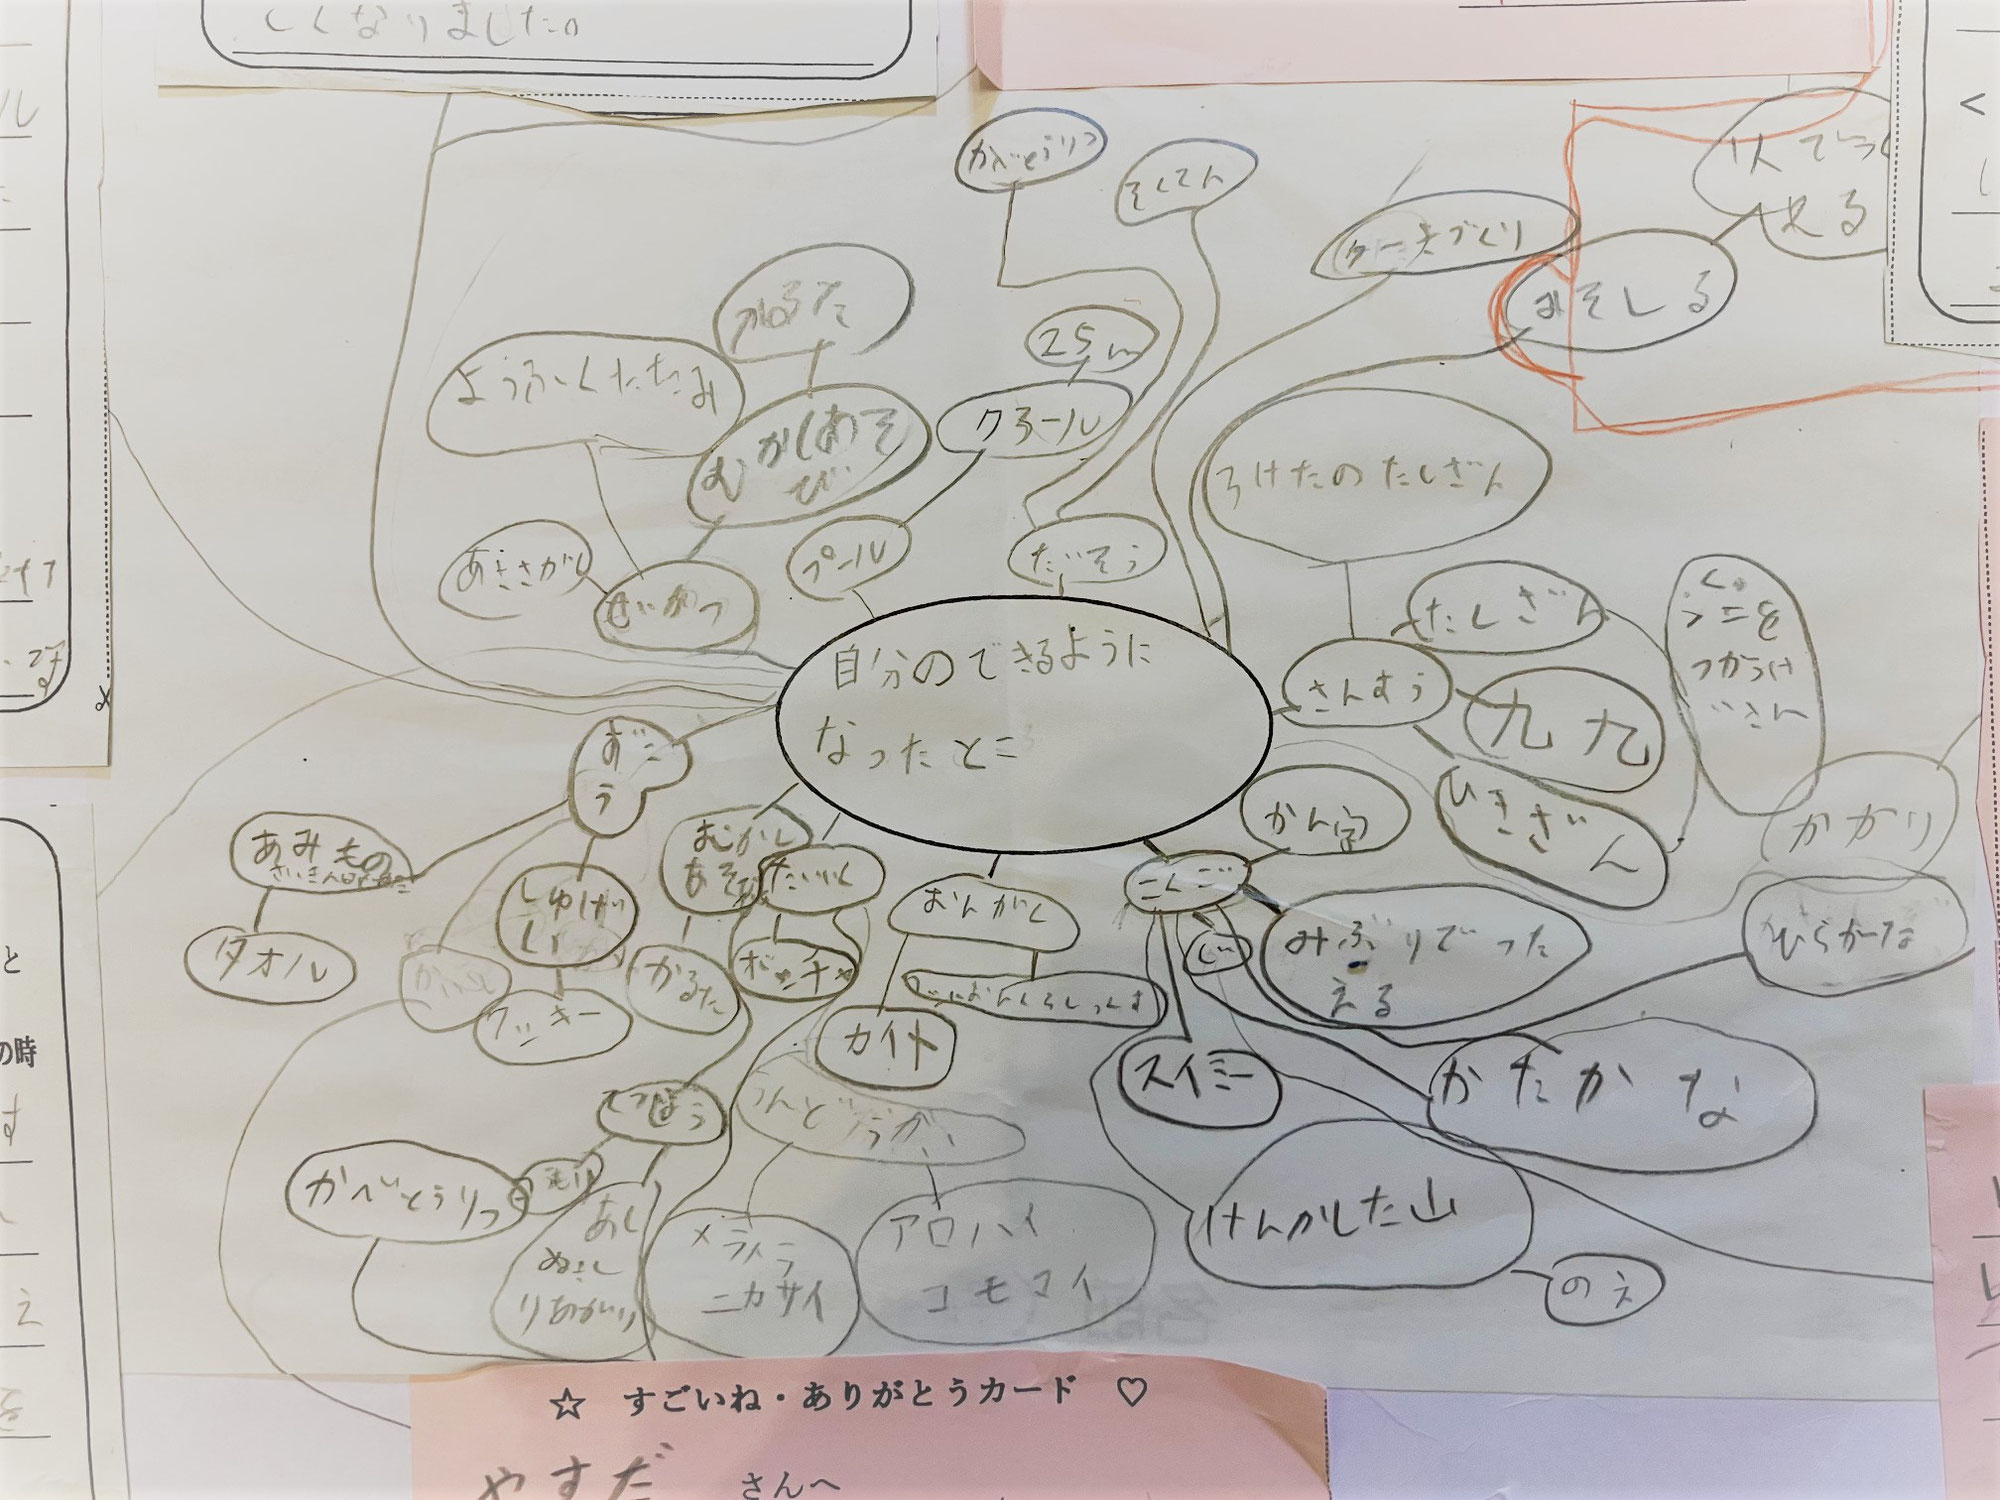 しくなりました。
かべとうりつ
そくてん
ケーキづくり
みそしる
かるた
25m
ようふくたたみ
クロール
むかしあそ
び
ろけたのたしざん
あきさがし
プール
たいそう
せいかつ
たしざん
くふうを
つかうけ
いさん
自分のできるように
なったとこ
さんすう
九九
ずこ
う
ひきざん
かん字
かかり
あみもの
むかし
あそび
たいいく
こくご
しゅげ
い
おんがく
タオル
かるた
みぶりでつた
える
ひらがな
クッキー
カイト
スイミー
かたかな
てつぼう
うんどうかい
かべとうりつ
あし
ぬきし
りあがり
メラメラ
ニカサイ
アロハイ
コモマイ
けんかした山
のえ
の時
☆ すごいね・ありがとうカード ♡
やすだ さんへ